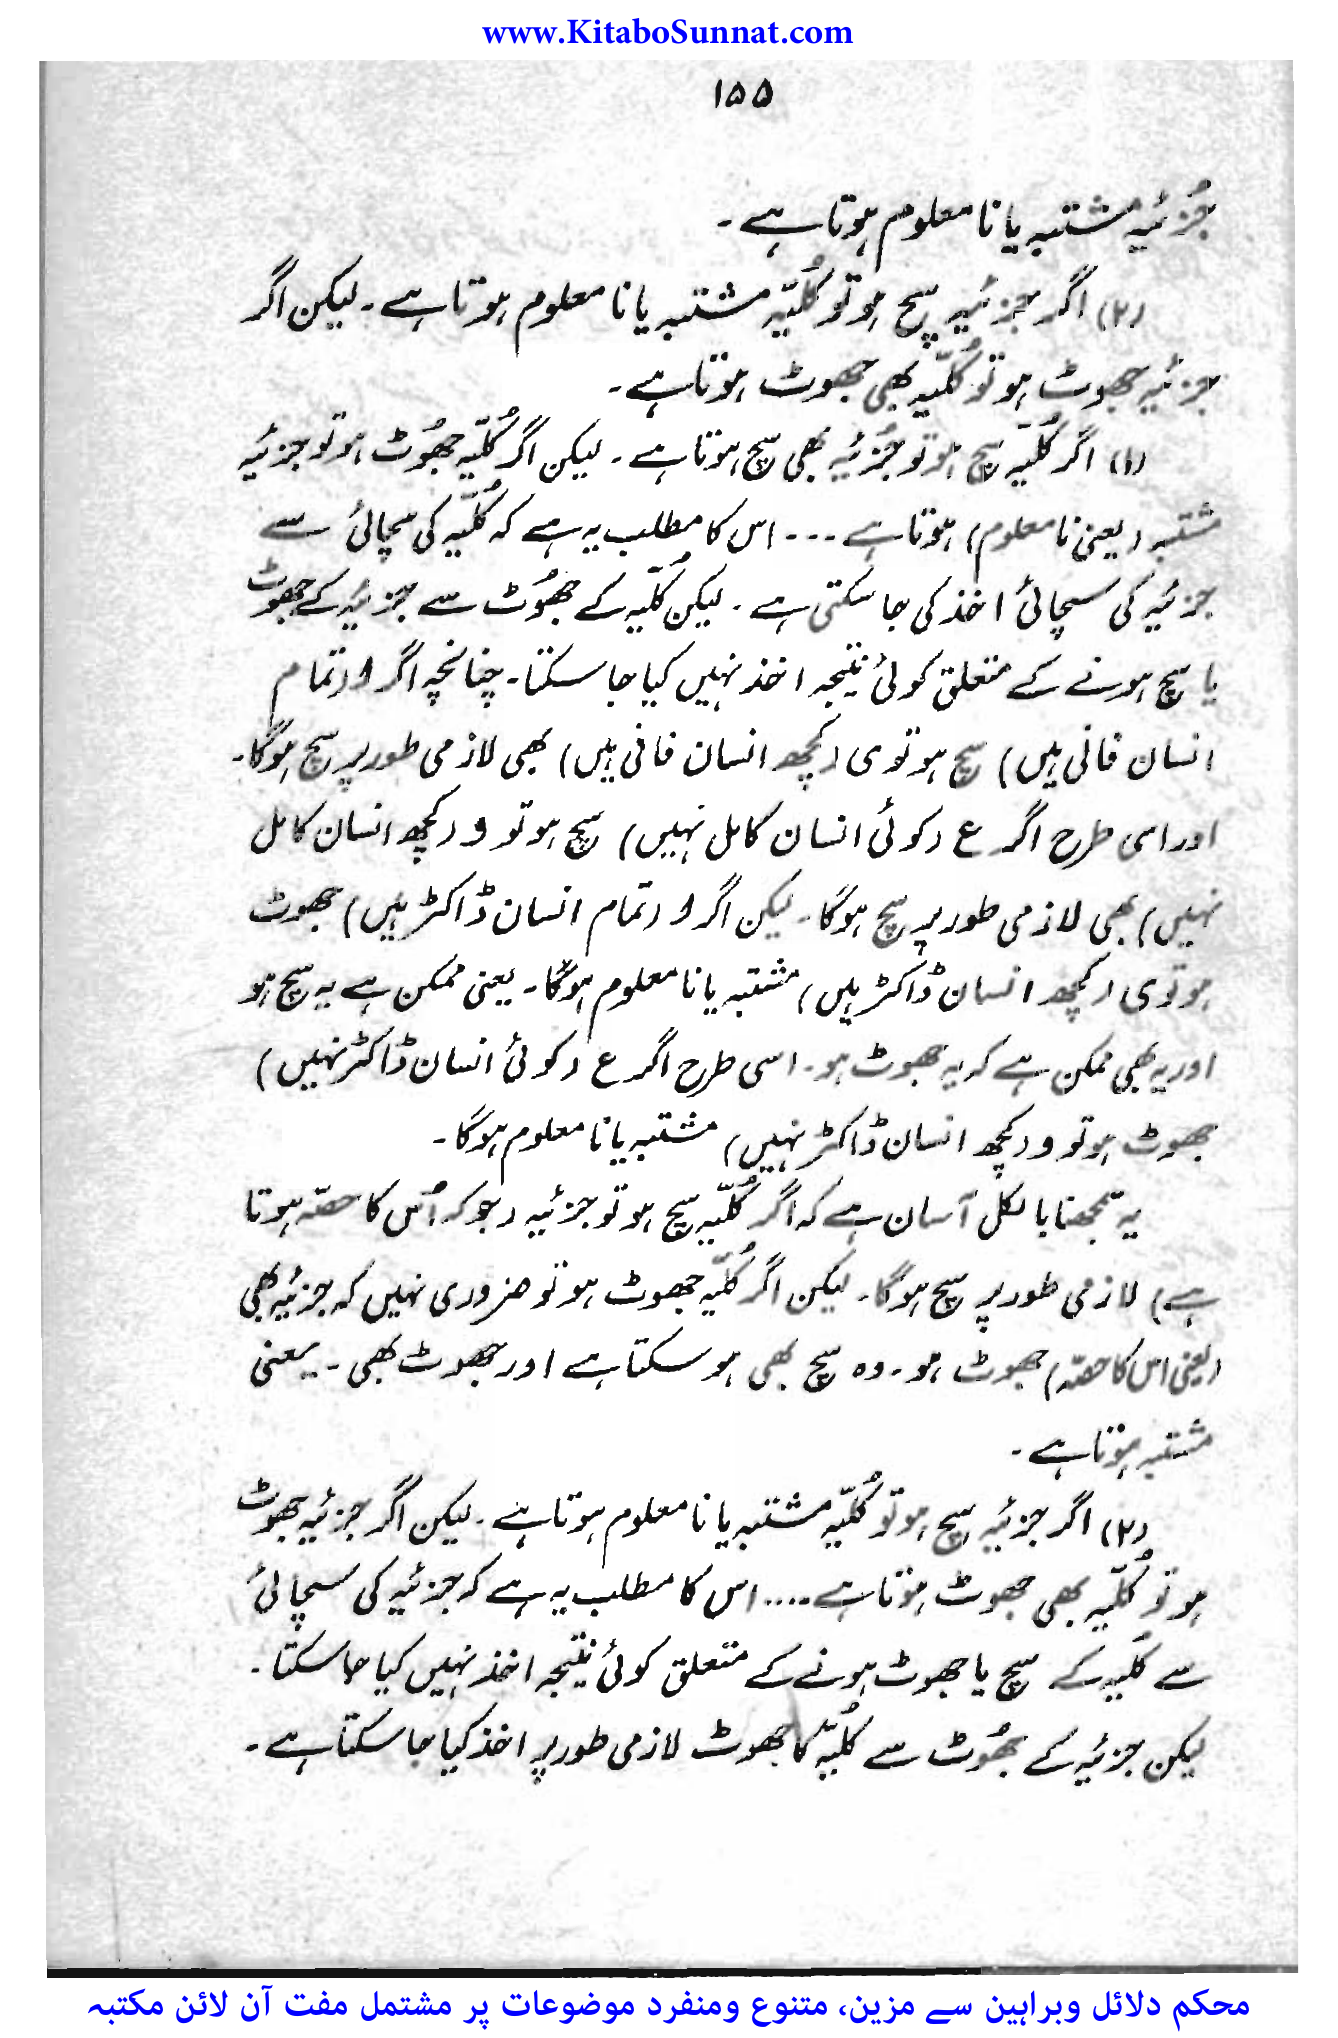 www.KitaboSunnat.com
۱۵۵
جُزئیہ مشتبہ یا نا معلوم ہوتا ہے۔
(۲) اگر جزئیہ سچ ہو تو کُلیّہ مشتبہ یا نا معلوم ہوتا ہے۔ لیکن اگر
جزئیہ جھوٹ ہو تو کُلیّہ بھی جھوٹ ہوتا ہے۔
(۱) اگر کُلیّہ سچ ہو تو جُزئیہ بھی سچ ہوتا ہے۔ لیکن اگر کُلیّہ جھُوٹ ہو تو جزئیہ
مشتبہ (یعنی نا معلوم) ہوتا ہے ۔۔۔ اس کا مطلب یہ ہے کہ کُلیّہ کی سچائی سے
جزئیہ کی سچائی اخذ کی جا سکتی ہے۔ لیکن کُلّیہ کے جھُوٹ سے جزئیہ کے جھوٹ
یا سچ ہونے کے متعلق کوئی نتیجہ اخذ نہیں کیا جا سکتا۔ چنانچہ اگر ا (تمام
انسان فانی ہیں) سچ ہو تو ی (کچھ انسان فانی ہیں) بھی لازمی طور پر سچ ہوگا۔
اور اسی طرح اگر ع (کوئی انسان کامل نہیں) سچ ہو تو و (کچھ انسان کامل
نہیں) بھی لازمی طور پر سچ ہوگا۔ لیکن اگر ا (تمام انسان ڈاکٹر ہیں) جھوٹ
ہو تو ی (کچھ انسان ڈاکٹر ہیں) مشتبہ یا نا معلوم ہوگا۔ یعنی ممکن ہے یہ سچ ہو
اور یہ بھی ممکن ہے کہ یہ جھوٹ ہو۔ اسی طرح اگر ع (کوئی انسان ڈاکٹر نہیں)
جھوٹ ہو تو و (کچھ انسان ڈاکٹر نہیں) مشتبہ یا نا معلوم ہوگا۔
یہ سمجھنا بالکل آسان ہے کہ اگر کُلّیہ سچ ہو تو جزئیہ (جو کہ اُس کا حصّہ ہوتا
ہے) لازمی طور پر سچ ہوگا۔ لیکن اگر کُلّیہ جھوٹ ہو تو ضروری نہیں کہ جزئیہ بھی
(یعنی اس کا حصّہ) جھوٹ ہو۔ وہ سچ بھی ہو سکتا ہے اور جھوٹ بھی۔ یعنی
مشتبہ ہوتا ہے۔
(۲) اگر جزئیہ سچ ہو تو کُلیّہ مشتبہ یا نا معلوم ہوتا ہے۔ لیکن اگر جزئیہ جھوٹ
ہو تو کُلّیہ بھی جھوٹ ہوتا ہے ۔۔۔۔ اس کا مطلب یہ ہے کہ جزئیہ کی سچائی
سے کُلیہ کے سچ یا جھوٹ ہونے کے متعلق کوئی نتیجہ اخذ نہیں کیا جا سکتا۔
لیکن جزئیہ کے جھُوٹ سے کُلیّہ کا جھوٹ لازمی طور پر اخذ کیا جا سکتا ہے۔
محکم دلائل وبراہین سے مزین، متنوع ومنفرد موضوعات پر مشتمل مفت آن لائن مکتبہ